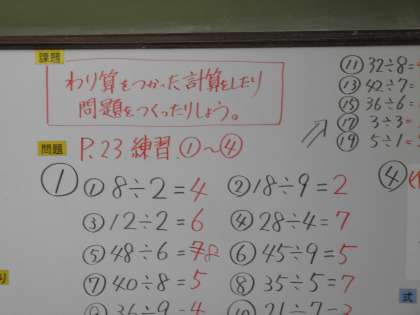 課題
わり算をつかった計算をしたり
問題をつくったりしょう。
問題 P.23 練習.①〜④
① ①8÷2=4 ②18÷9=2
③12÷2=6 ④28÷4=7
⑤48÷6=78 ⑥45÷9=5
⑦40÷8=5 ⑧35÷5=7
36÷9=4 21÷7=3
⑪32÷8=
⑬42÷7=
⑮36÷6=
⑰3÷3=
⑲5÷1=
④
式